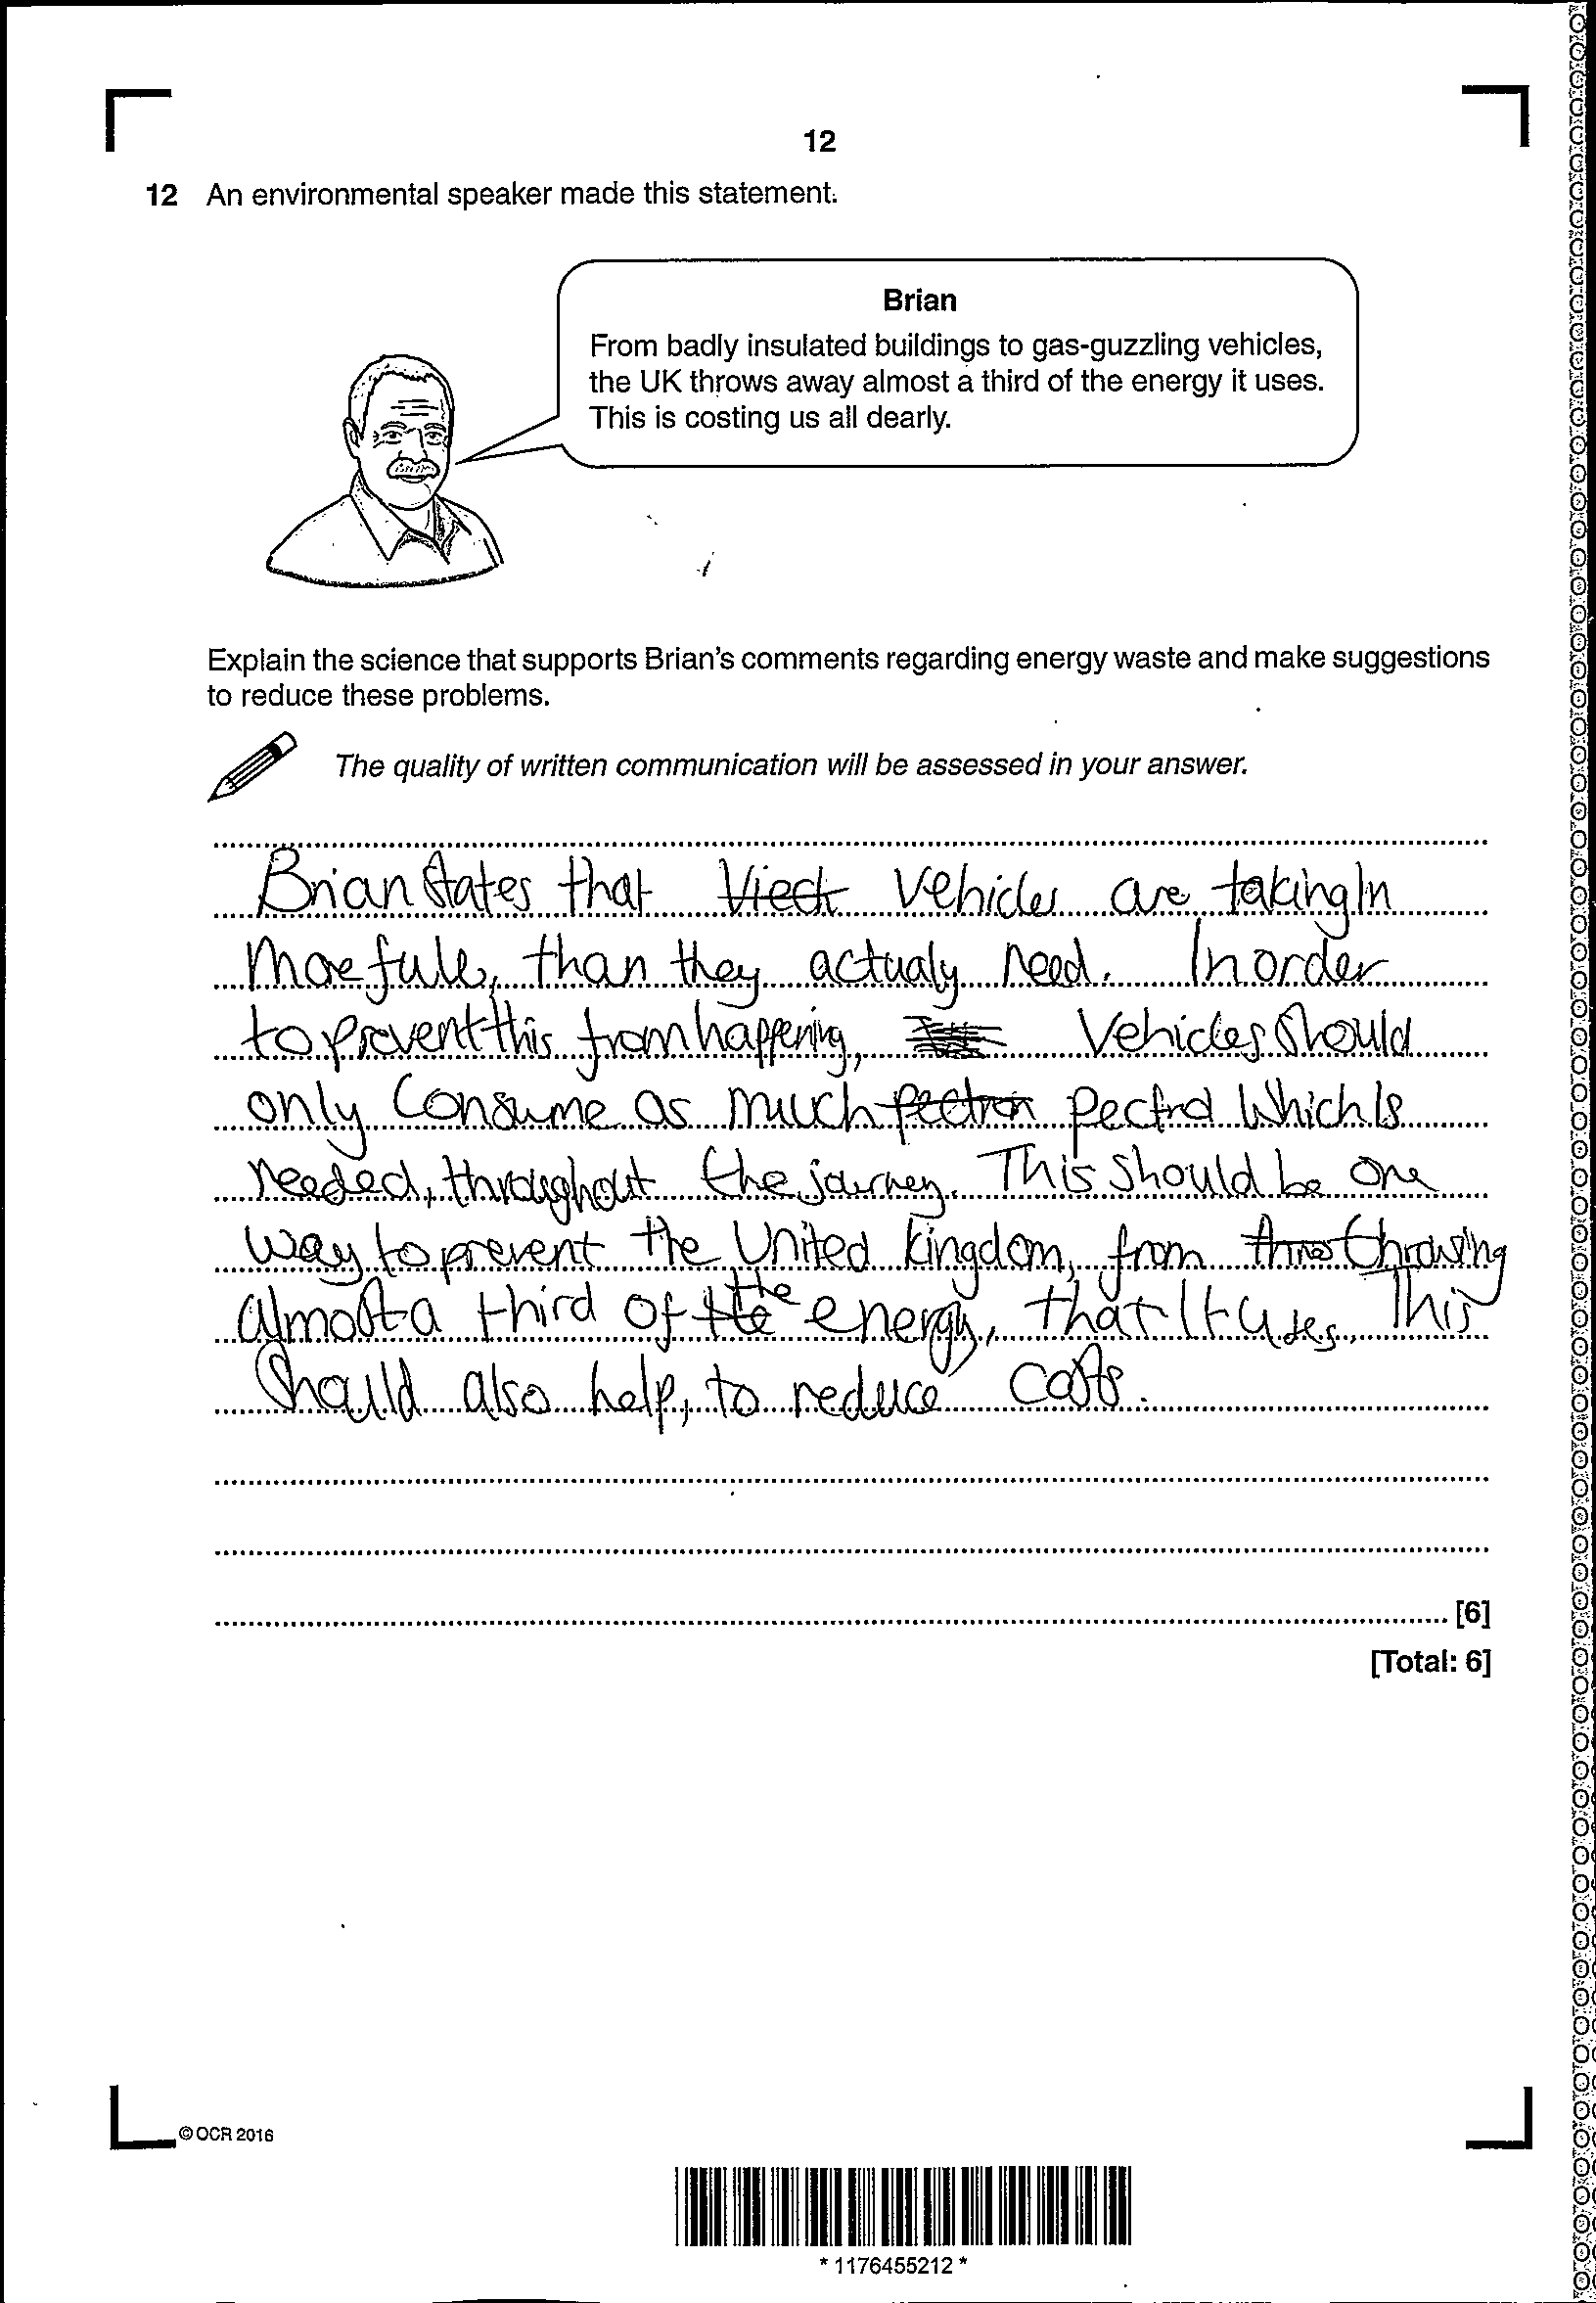 12
12 An environmental speaker made this statement.
Brian
From badly insulated buildings to gas-guzzling vehicles,
the UK throws away almost a third of the energy it uses.
This is costing us all dearly.
Explain the science that supports Brian's comments regarding energy waste and make suggestions
to reduce these problems.
The quality of written communication will be assessed in your answer.
Brian states that Vieck vehicles are taking In
more fule, than they actualy need. In order
to prevent this from happening, Vehicles should
only consume as much pectrol Which Is
needed, throughout the journey. This should be one
way to prevent the United kingdom, from thro throwing
almost a third of the the energy, that It uses. This
should also help, to reduce costs.
[6]
[Total: 6]
© OCR 2016
* 1176455212 *